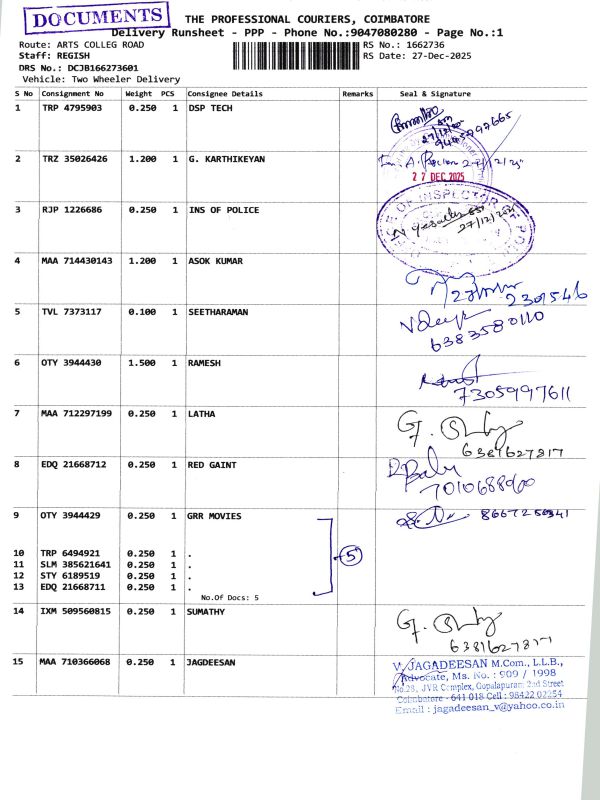 DOCUMENTS
THE PROFESSIONAL COURIERS, COIMBATORE
Delivery Runsheet - PPP - Phone No.:9047080280 - Page No.:1
Route: ARTS COLLEG ROAD
RS No.: 1662736
Staff: REGISH
RS Date: 27-Dec-2025
DRS No.: DCJB166273601
Vehicle: Two Wheeler Delivery
S No Consignment No Weight PCS Consignee Details Remarks Seal & Signature
1 TRP 4795903 0.250 1 DSP TECH
27/12/25
2 TRZ 35026426 1.200 1 G. KARTHIKEYAN
27/12/25
27 DEC 2025
3 RJP 1226686 0.250 1 INS OF POLICE
OF INSPECTOR OF
27/12/2025
4 MAA 714430143 1.200 1 ASOK KUMAR
2301546
5 TVL 7373117 0.100 1 SEETHARAMAN
6383580110
6 OTY 3944430 1.500 1 RAMESH
7305997611
7 MAA 712297199 0.250 1 LATHA
G.
6381627817
8 EDQ 21668712 0.250 1 RED GAINT
Babu
7010688960
9 OTY 3944429 0.250 1 GRR MOVIES
10 TRP 6494921 0.250 1 .
5
11 SLM 385621641 0.250 1 .
12 STY 6189519 0.250 1 .
13 EDQ 21668711 0.250 1 .
No.Of Docs: 5
14 IXM 509560815 0.250 1 SUMATHY
G.
6381627817
15 MAA 710366068 0.250 1 JAGDEESAN
V. JAGADEESAN M.Com., L.L.B.,
Advocate, Ms. No. : 909 / 1998
No.28, JVR Complex, Gupalapuram 2nd Street
Coimbatore - 641 018 Cell : 98422 02254
Email : jagadeesan_v@yahoo.co.in